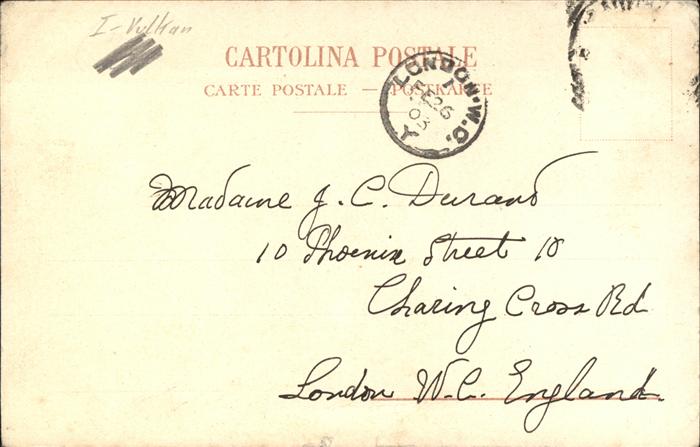 I-Vulkan
CARTOLINA POSTALE
CARTE POSTALE — POSTKARTE
LONDON.W.C.
26
03
Madame J. C. Durand
10 Phoenix Street 10
Charing Cross Rd
London W.C. England.